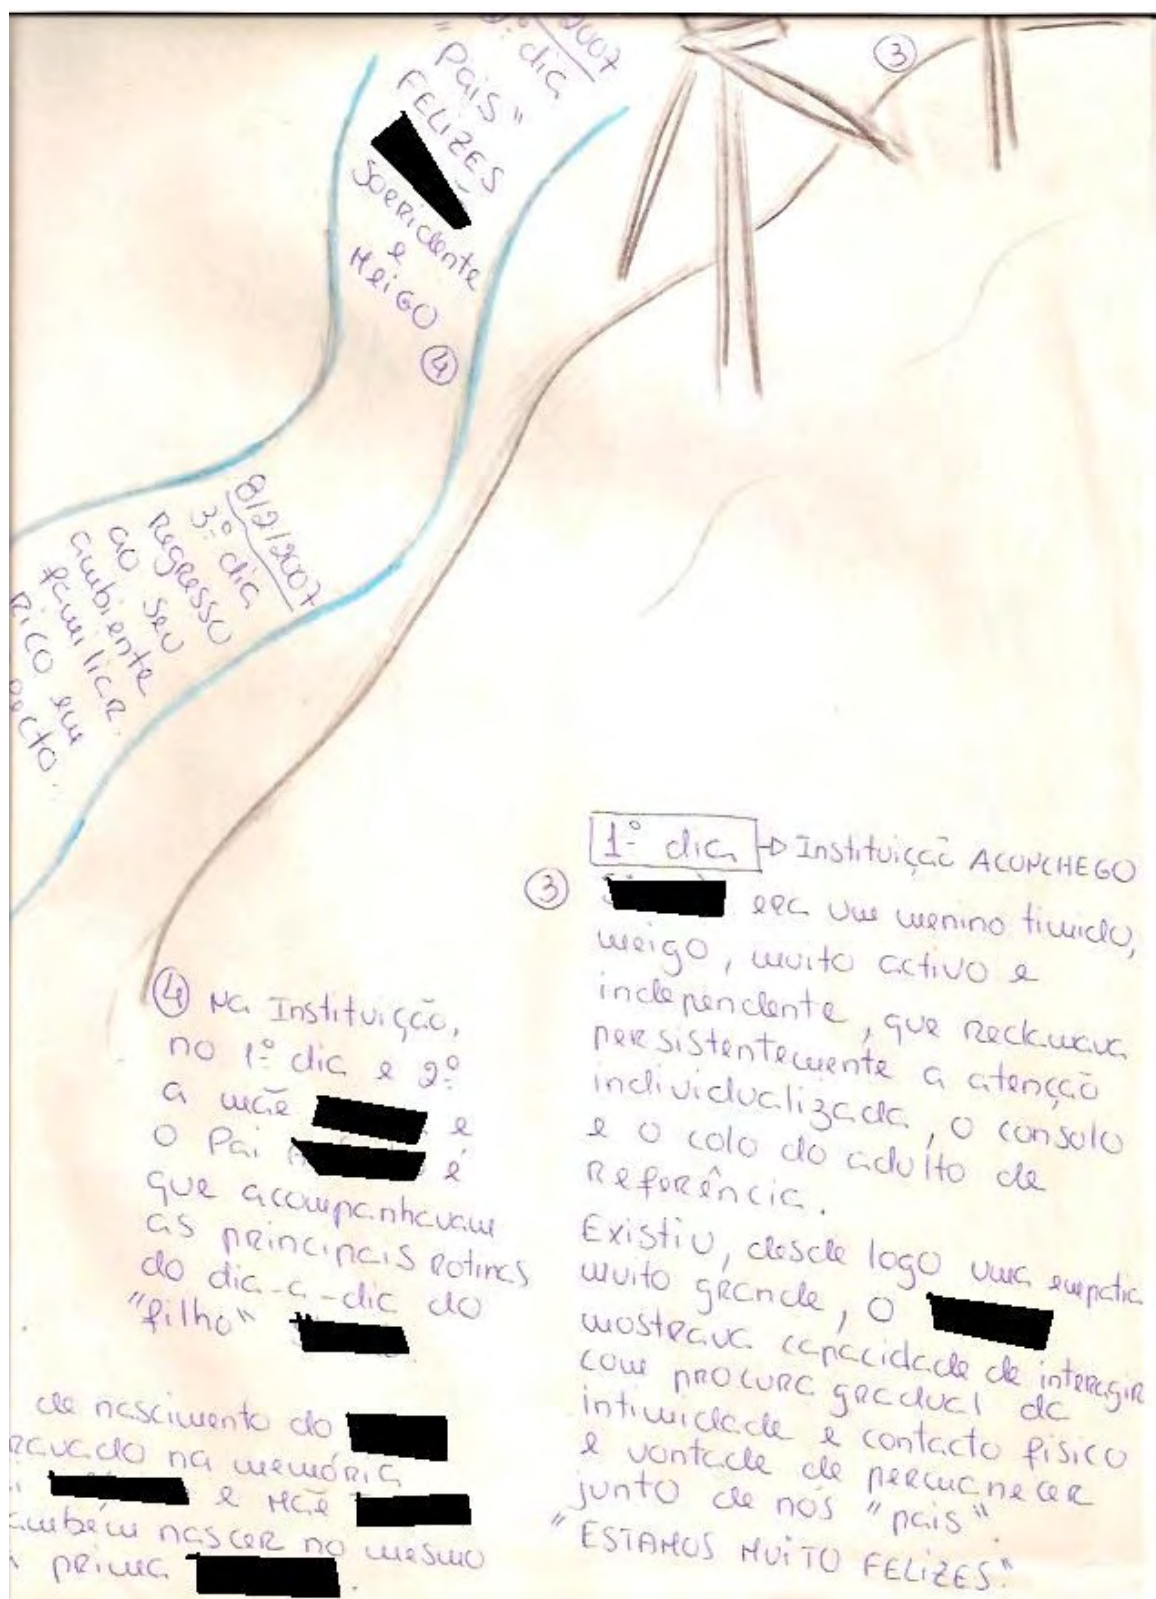 2007
2º dia
"Pais"
FELIZES
Sorridente
e
Meigo
④
③
8/2/2007
3º dia
Regresso
ao seu
ambiente
familiar.
Rico em
ecto.
1º dia → Instituição ACONCHEGO
③ era um menino timido,
meigo, muito activo e
independente, que reclamava
persistentemente a atenção
individualizada, o consolo
e o colo do adulto de
Referência.
Existiu, desde logo uma empatia
muito grande, o
mostrava capacidade de interagir
com procura gradual da
intimidade e contacto fisico
e vontade de permanecer
junto de nós "pais".
"ESTAMOS MUITO FELIZES."
④ Na Instituição,
no 1º dia e 2º
a mãe e
o Pai é
que acompanhavam
as principais rotinas
do dia-a-dia do
"filho"
de nascimento do
ravado na memória
e Mãe
ambém nascer no mesmo
prima .